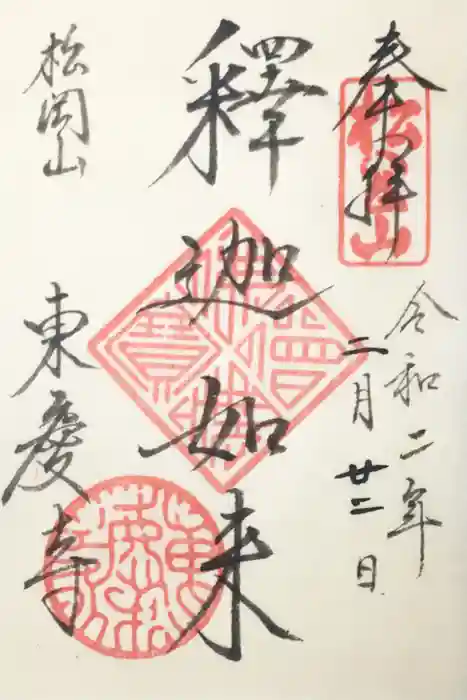 奉拝
松岡山
令和二年
二月廿二日
釋迦如来
松岡山
東慶寺